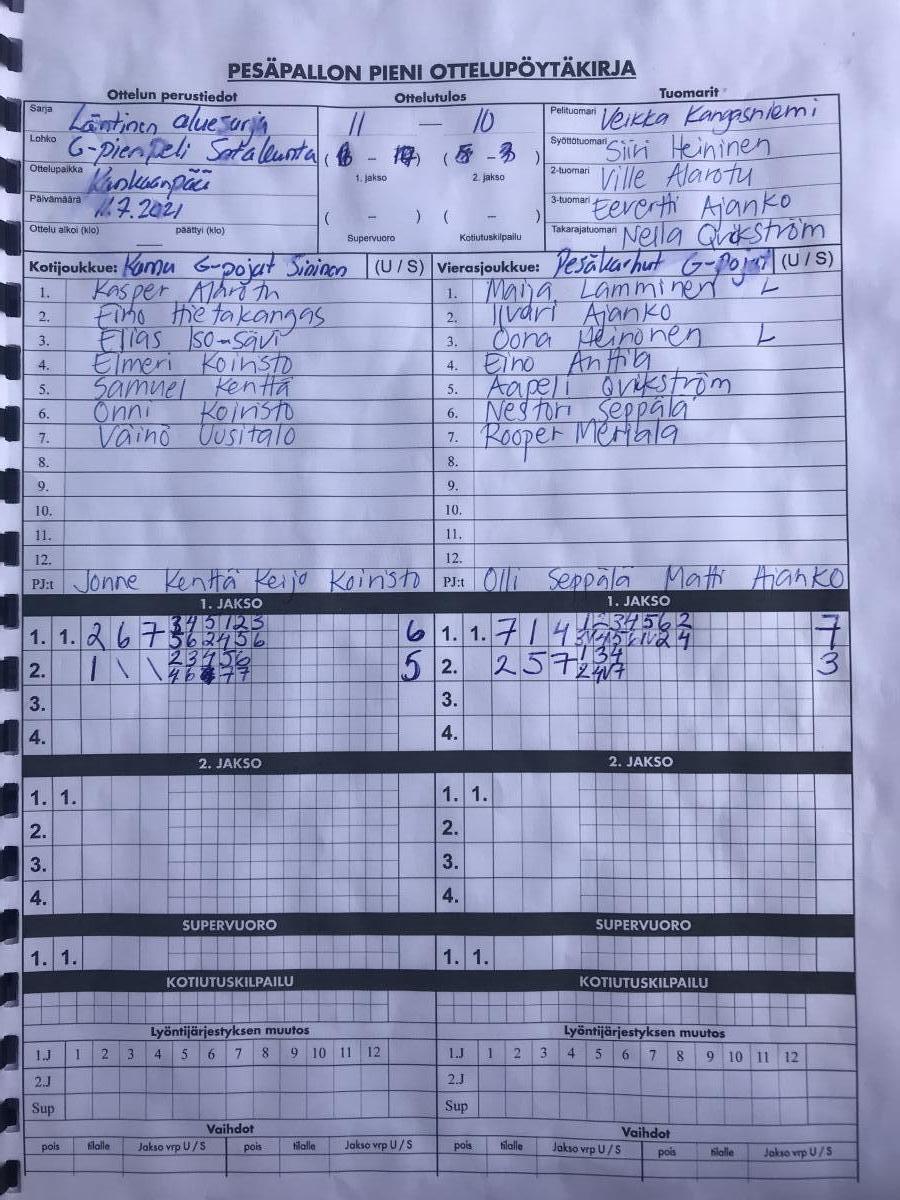 PESÄPALLON PIENI OTTELUPÖYTÄKIRJA
Ottelun perustiedot
Ottelutulos
Tuomarit
Sarja Läntinen aluesarja
11 — 10
Pelituomari Veikka Kangasniemi
Lohko G-pienpeli Satakunta
( - ) ( - 3 )
Syöttötuomari Siiri Heininen
1. jakso 2. jakso
Ottelupaikka Kankaanpää
2-tuomari Ville Alarotu
Päivämäärä 11.7.2021
3-tuomari Eevertti Ajanko
( - ) ( - )
Ottelu alkoi (klo) päättyi (klo)
Supervuoro Kotiutuskilpailu
Takarajatuomari Nella Qvikström
Kotijoukkue: Kamu G-pojat Sininen (U / S)
Vierasjoukkue: Pesäkarhut G-pojat (U / S)
1. Kasper Alarotu
2. Eino Hietakangas
3. Elias Iso-Sävi
4. Elmeri Koivisto
5. Samuel Kenttä
6. Onni Koivisto
7. Väinö Uusitalo
8.
9.
10.
11.
12.
PJ:t Jonne Kenttä Keijo Koivisto
1. Maija Lamminen L
2. Iivari Ajanko
3. Oona Heinonen L
4. Eino Anttila
5. Aapeli Qvikström
6. Nestori Seppälä
7. Rooper Merjala
8.
9.
10.
11.
12.
PJ:t Olli Seppälä Matti Ajanko
1. JAKSO
1. 1. 2 6 7 3 4 5 1 2 3 6
5 6 2 4 5 6
2. 1 \ \ 2 3 4 5 6 5
4 6 7 7
3.
4.
1. JAKSO
1. 1. 7 1 4 1 2 3 4 5 6 2 7
2. 2 5 7 1 3 4 3
3.
4.
2. JAKSO
1. 1.
2.
3.
4.
2. JAKSO
1. 1.
2.
3.
4.
SUPERVUORO
1. 1.
SUPERVUORO
1. 1.
KOTIUTUSKILPAILU
KOTIUTUSKILPAILU
Lyöntijärjestyksen muutos
1.J 1 2 3 4 5 6 7 8 9 10 11 12
2.J
Sup
Lyöntijärjestyksen muutos
1.J 1 2 3 4 5 6 7 8 9 10 11 12
2.J
Sup
Vaihdot
pois tilalle Jakso vrp U / S pois tilalle Jakso vrp U / S
Vaihdot
pois tilalle Jakso vrp U / S pois tilalle Jakso vrp U / S